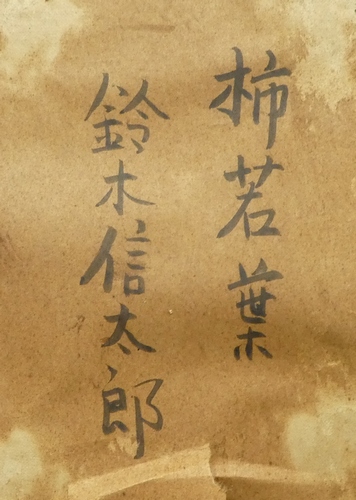 柿若葉
鈴木信太郎